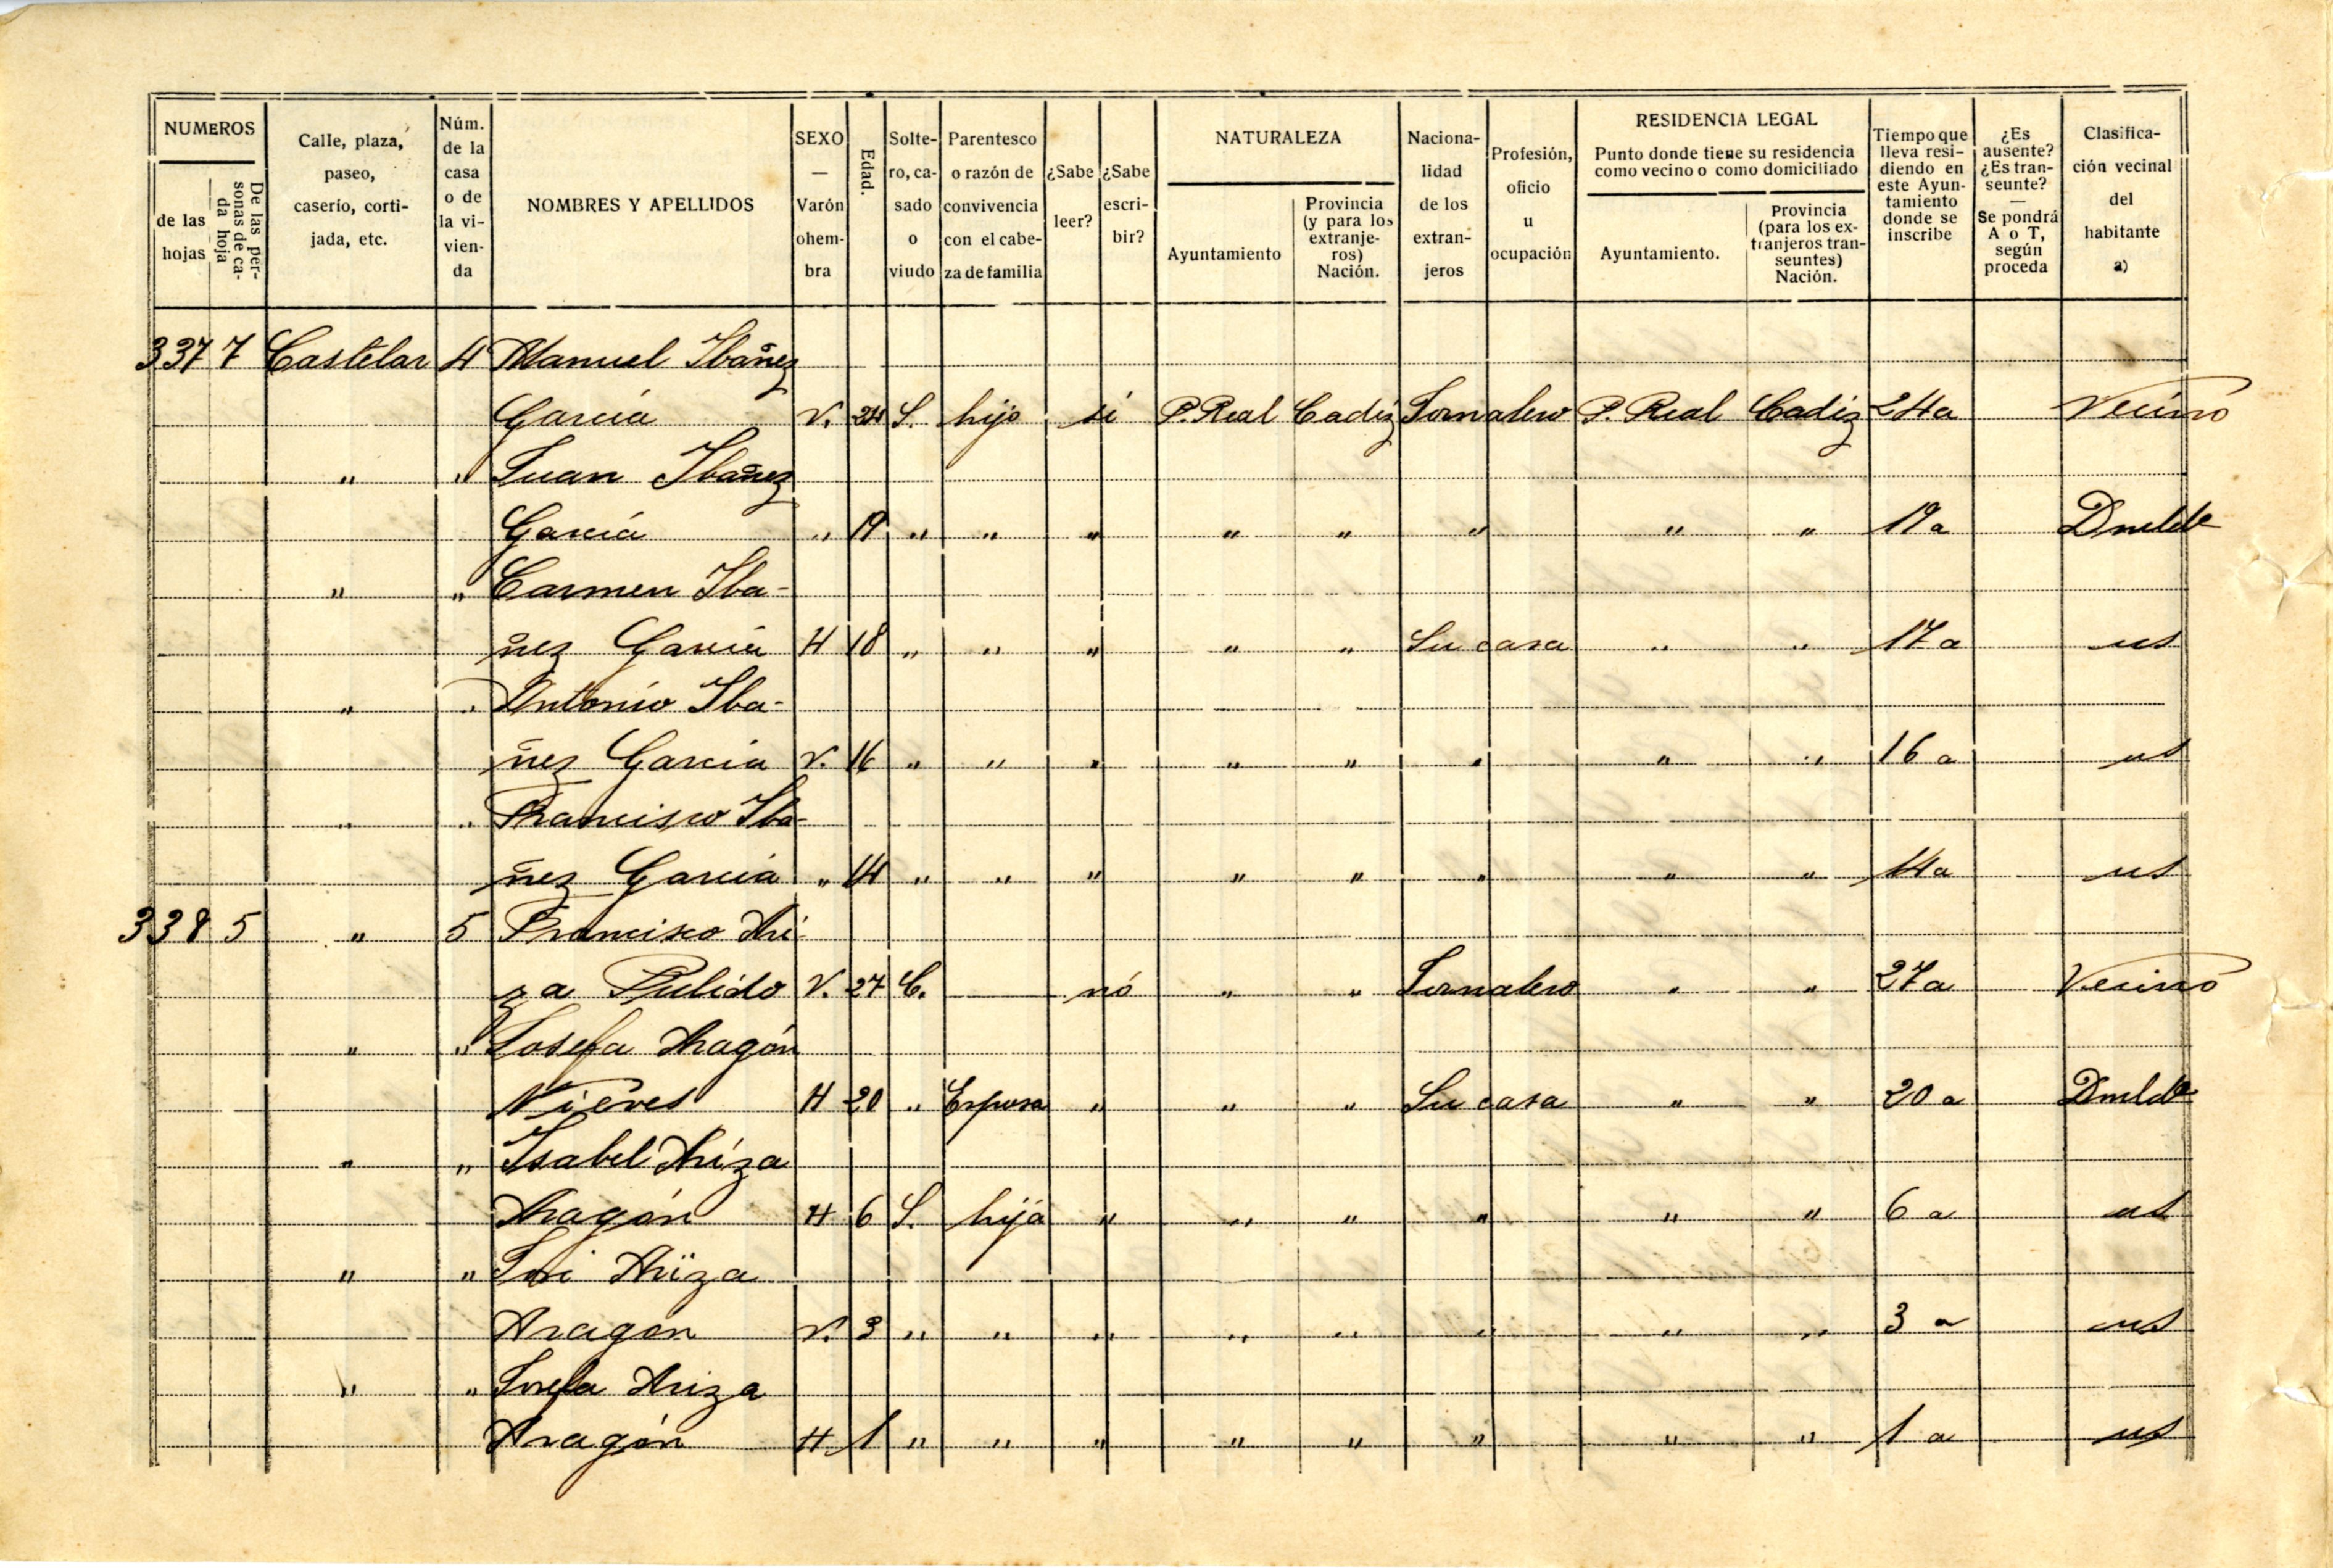 NUMEROS
de las hojas
De las personas de cada hoja
Calle, plaza, paseo, caserío, cortijada, etc.
Núm. de la casa o de la vivienda
NOMBRES Y APELLIDOS
SEXO — Varón ohembra
Edad.
Soltero, casado o viudo
Parentesco o razón de convivencia con el cabeza de familia
¿Sabe leer?
¿Sabe escribir?
NATURALEZA
Ayuntamiento
Provincia (y para los extranjeros) Nación.
Nacionalidad de los extranjeros
Profesión, oficio u ocupación
RESIDENCIA LEGAL
Punto donde tiene su residencia como vecino o como domiciliado
Ayuntamiento.
Provincia (para los extranjeros transeuntes) Nación.
Tiempo que lleva residiendo en este Ayuntamiento donde se inscribe
¿Es ausente? ¿Es transeunte? — Se pondrá A o T, según proceda
Clasificación vecinal del habitante a)
337 7 Castelar 4 Manuel Ibañez
García V. 24 S. hijo si P. Real Cadiz Jornalero P. Real Cadiz 24 a Vecino
" " Juan Ibañez
García " 19 " " " " " " " " 19 a Dmldo
" " Carmen Iba-
ñez García H 18 " " " " " Su casa " " 17 a id
" " Antonio Iba-
ñez García V. 16 " " " " " " " " 16 a id
" " Francisco Iba-
ñez García " 14 " " " " " " " " 14 a id
338 5 " 5 Francisco Ari
za Pulido V. 27 C. — nó " " Jornalero " " 27 a Vecino
" " Josefa Aragón
Nieves H 20 " Esposa " " " Su casa " " 20 a Dmldo
" " Isabel Ariza
Aragón H 6 S. hija " " " " " " 6 a id
" " José Ariza
Aragon V. 3 " " " " " " " " 3 a id
" " Josefa Ariza
Aragón H 1 " " " " " " " " 1 a id